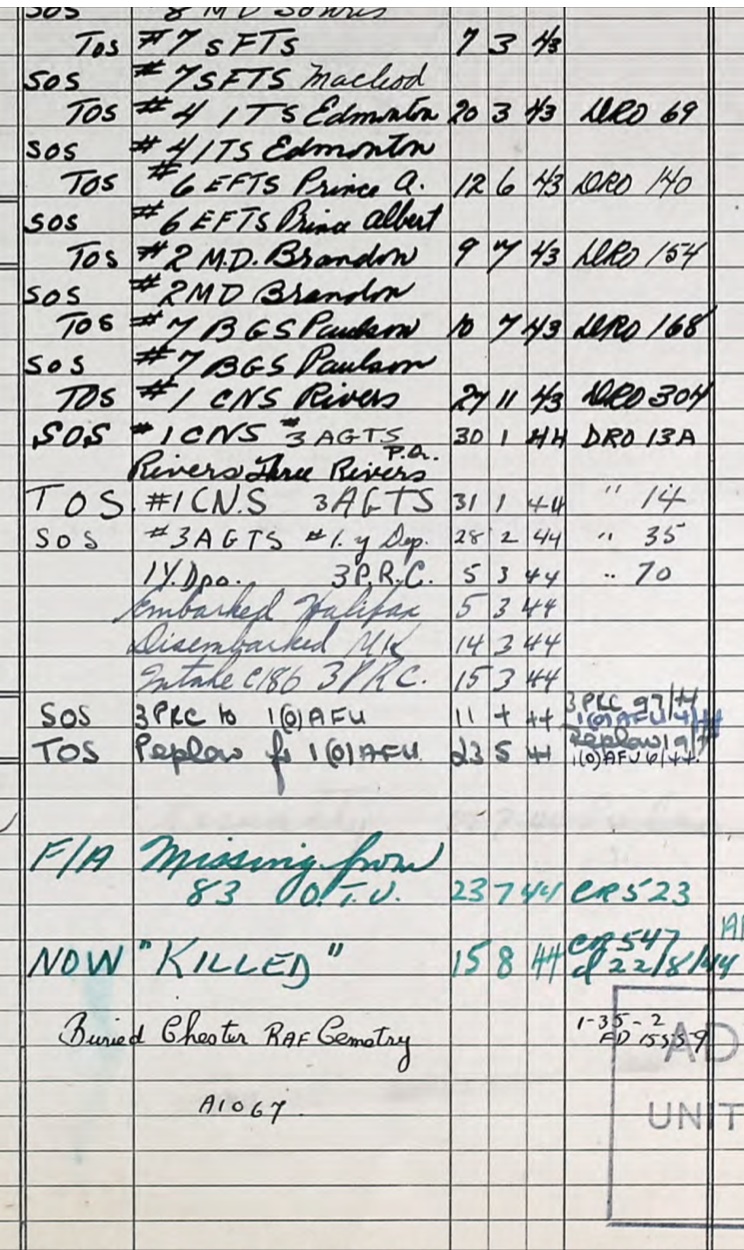 SOS 8 MD Souris
TOS #7 SFTS 7 3 43
SOS #7SFTS Macleod
TOS #4 ITS Edmonton 20 3 43 DRO 69
SOS #4 ITS Edmonton
TOS #6 EFTS Prince A. 12 6 43 DRO 140
SOS #6 EFTS Prince Albert
TOS #2 M.D. Brandon 9 7 43 DRO 154
SOS #2 MD Brandon
TOS #7 BGS Paulson 10 7 43 DRO 168
SOS #7 BGS Paulson
TOS #1 CNS Rivers 27 11 43 DRO 304
SOS #1CNS #3 AGTS 30 1 44 DRO 13A
Rivers Three Rivers P.Q.
TOS. #1 C.N.S 3AGTS 31 1 44 " 14
SOS #3AGTS #1. y Dep. 28 2 44 " 35
1Y.Dpo. 3P.R.C. 5 3 44 " 70
Embarked Halifax 5 3 44
Disembarked UK 14 3 44
Intake C186 3PRC. 15 3 44
3PRC 97/44
SOS 3PRC to 1(0)AFU 11 4 44 1(0)AFU 4/44
TOS Peplow f 1(0)AFU 23 5 44 Peplow
1(0)AFU 6/44.
F/A Missing from
83 O.T.U. 23 7 44 CR 523
NOW "KILLED" 15 8 44 CR 547
d 22/8/44
Buried Chester RAF Cemetry 1-35-2
A1067.
AD
UNIT